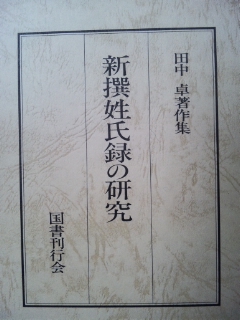 田中 卓著作集
新撰姓氏録の研究
国書刊行会